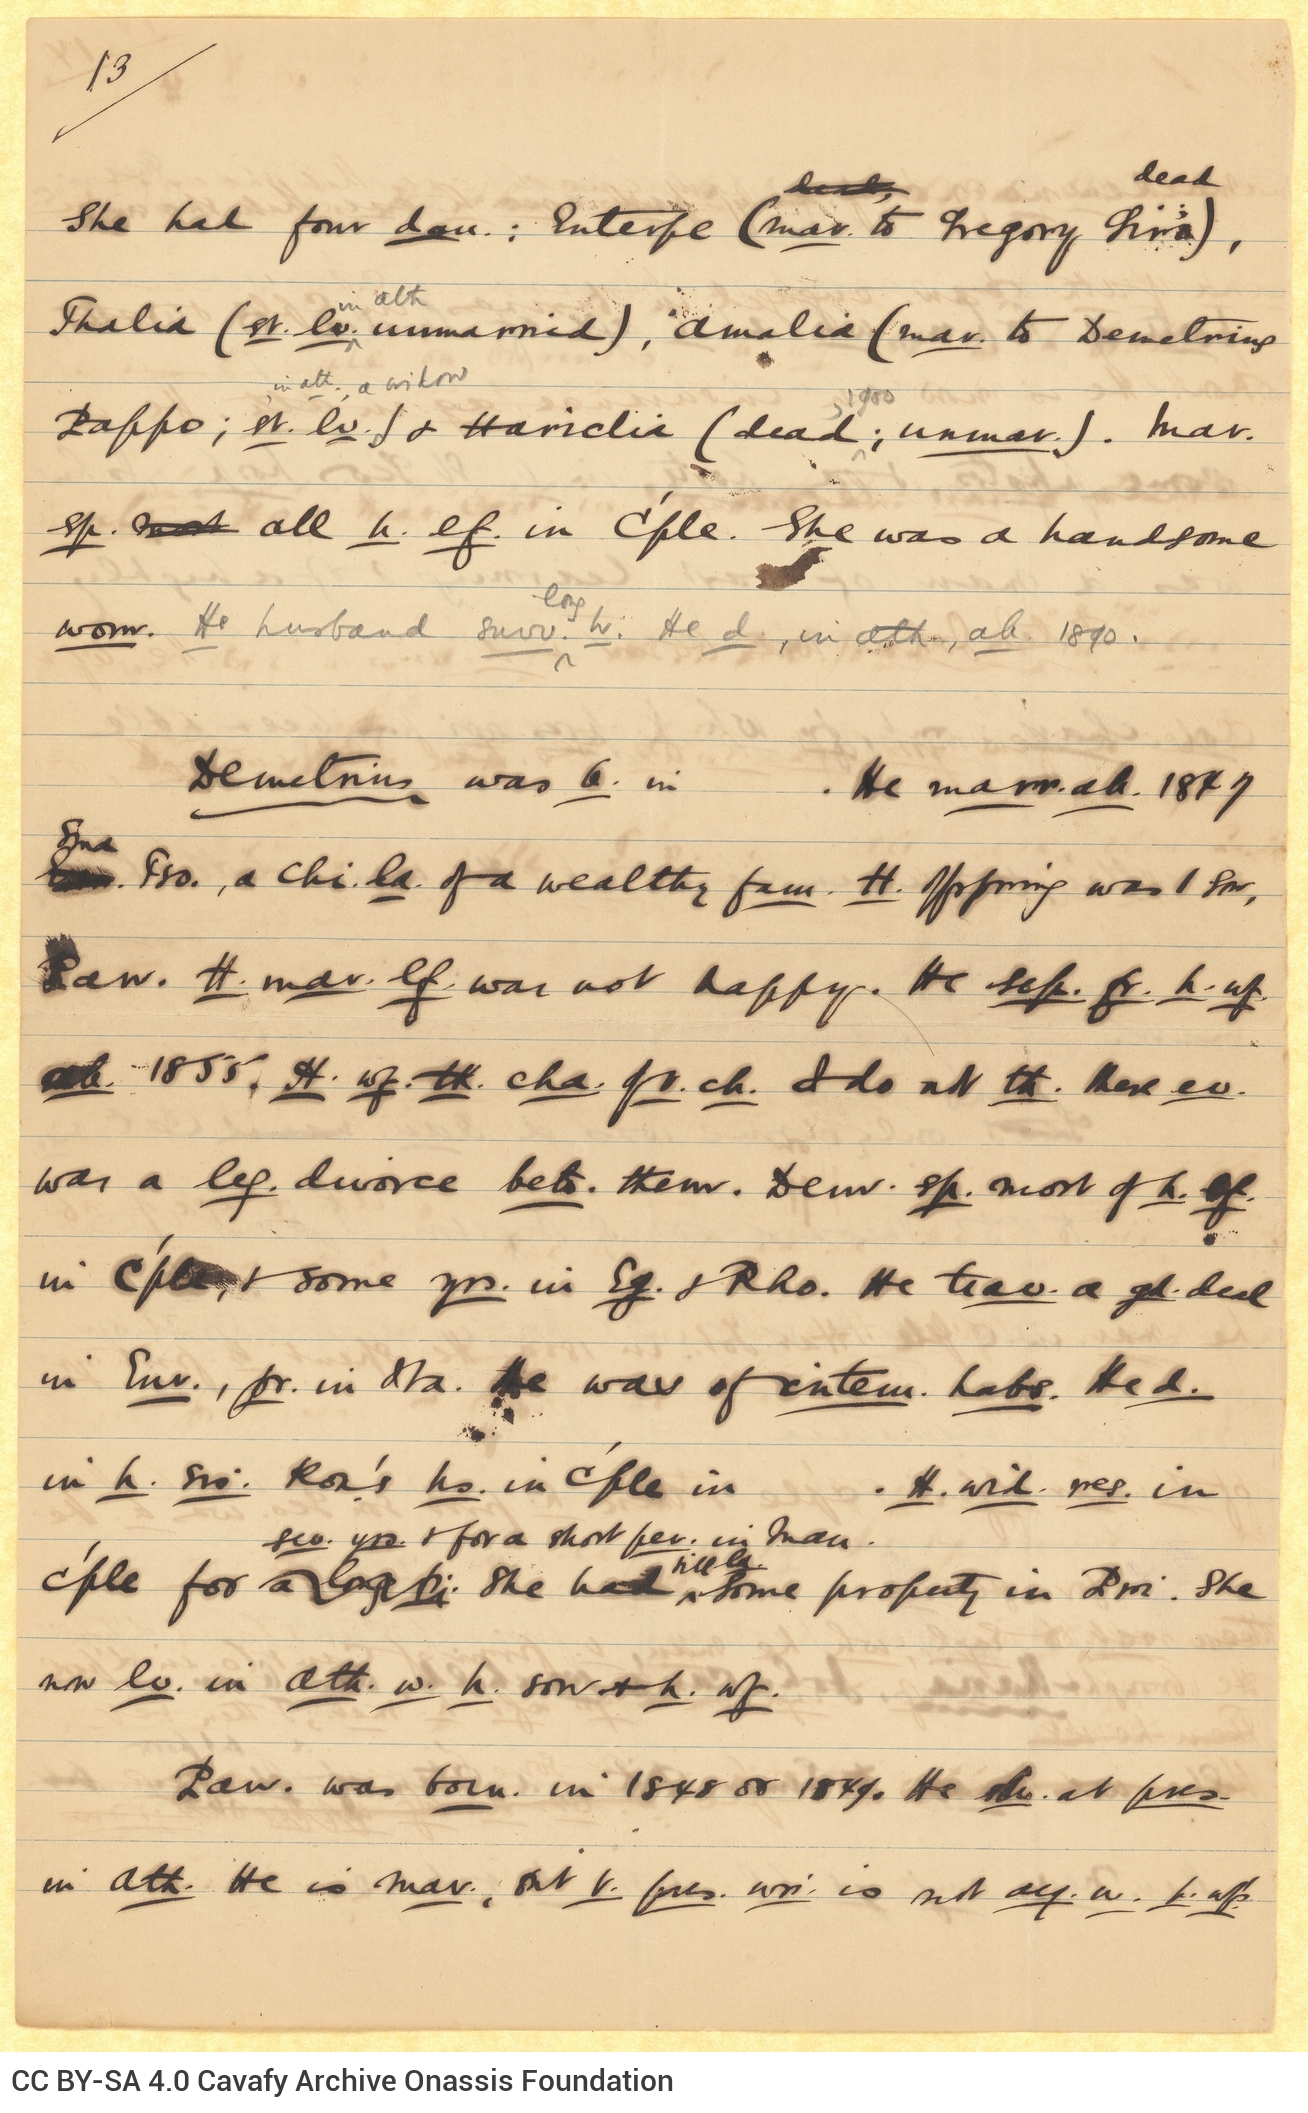 13
dead, dead
She had four dau. : Euterpe (mar. to Gregory ;),
in Ath
Thalia (st. lv. unmarried), Amalia (mar. to Demetrius
in Ath., a widow , 1900
Pappo; st. lv.) & Hariclia (dead; unmar.). Mar.
sp. most all h. lf. in C'ple. She was a handsome
long
wom. He husband surv. h. He d., in Ath., ab. 1890.
Demetrius was b. in . He marr. ab. 1847
Sma
. Tso., a Chi. la. of a wealthy fam. H. offspring was 1 son,
Pan. H. mar. lf. was not happy. He sep. fr. h. wf.
ab. 1855. H. wf. th. cha. fr. ch. I do not th. there ev.
was a leg. divorce betw. them. Dem. sp. most of h. lf.
in C'ple, & some yrs. in Eg. & Rho. He trav. a gd. deal
in Eur., pr. in Ita. He was of intem. habs. He d.
in h. sis. Rox's hs. in C'ple in . H. wid. res. in
sev. yrs. & for a short per. in Man.
till la.
C'ple for a long pi. She had some property in Pri. She
now lv. in Ath. w. h. son & h. wf.
Pan. was born. in 1848 or 1849. He lv. at pres.
in Ath. He is mar., but t. pres. wri. is not aq. w. h. wf's
CC BY-SA 4.0 Cavafy Archive Onassis Foundation